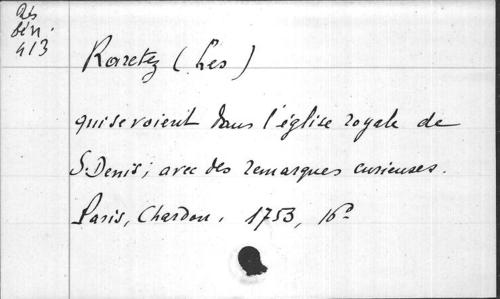 Rés
bén.
413
Raretez (Les)
qui se voient dans l'église royale de
S. Denis; avec des remarques curieuses.
Paris, Chardon, 1753, 16º